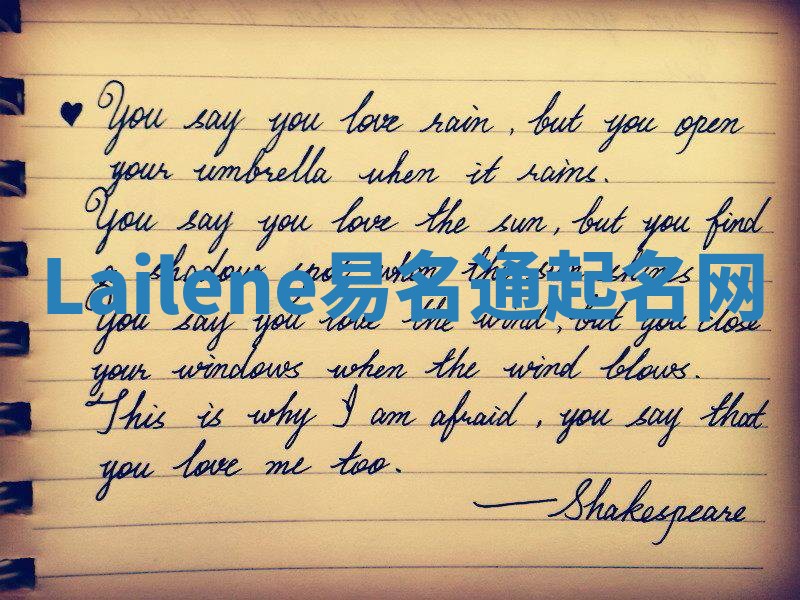 ♥ You say you love rain, but you open
your umbrella when it rains.
You say you love the sun, but you find
a shadow spot when the sun shines
Lailene易名通起名网
You say you love the wind, but you close
your windows when the wind blows.
This is why I am afraid, you say that
you love me too.
— Shakespeare